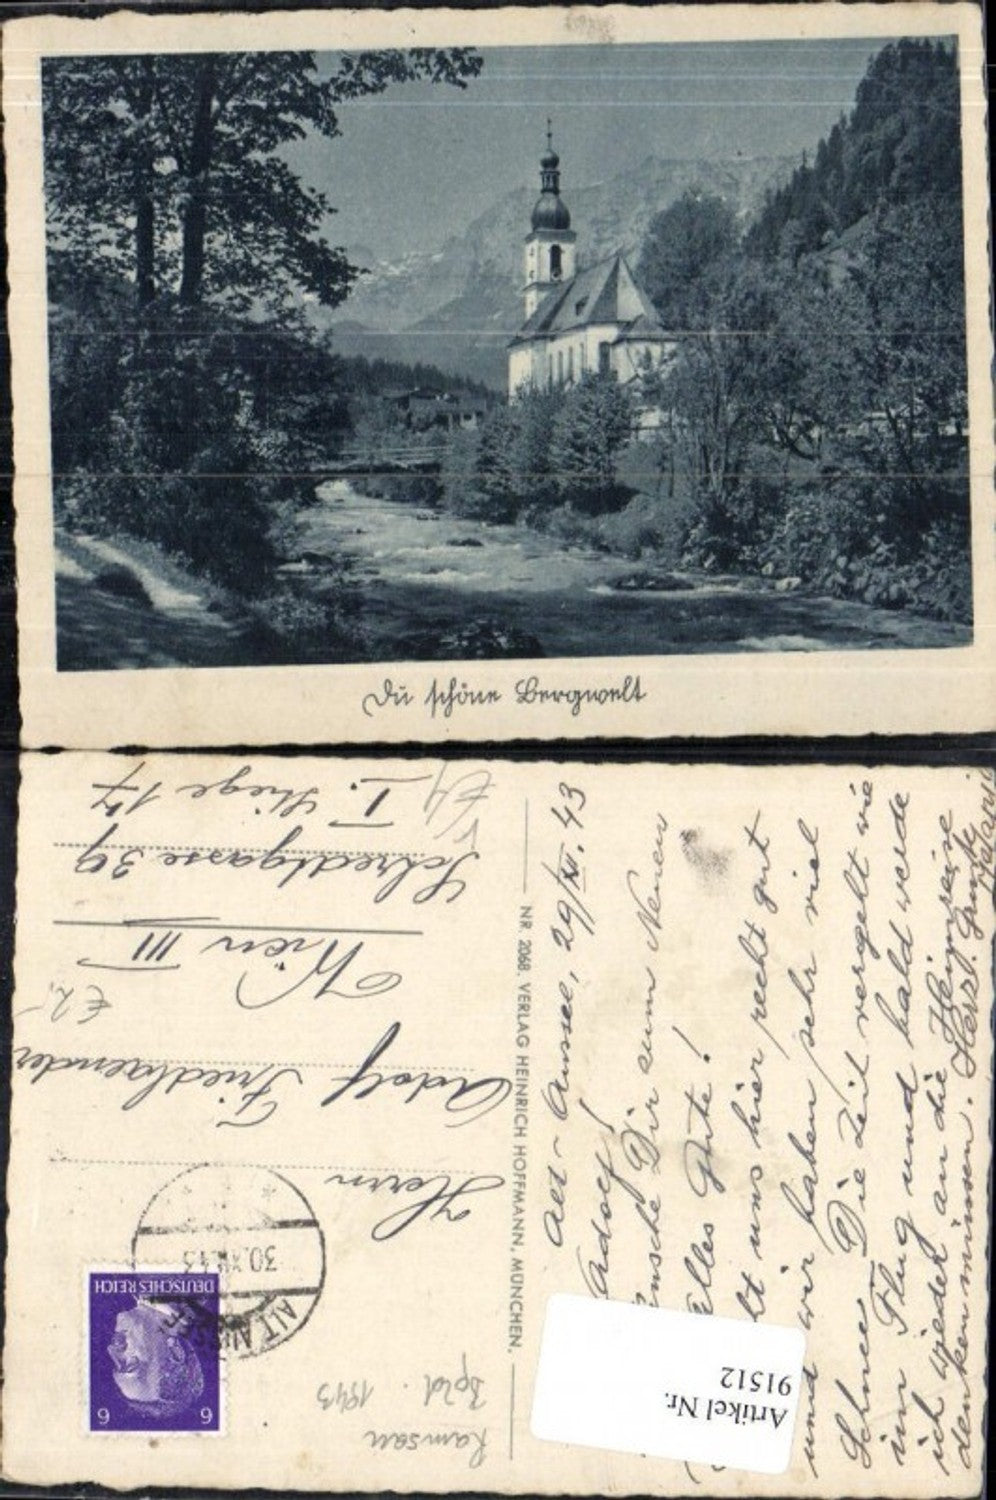 Du schöne Bergwelt
Alt-Aussee, 29/XII.43
Adolf!
Dir zum Neuen
Alles Gute!
uns hier recht gut
und wir haben sehr viel
Schnee. Die Zeit vergeht wie
im Flug und bald werde
ich wieder an die Heimreise
denken müssen. Herzl. Grüße
NR. 2068. VERLAG HEINRICH HOFFMANN, MÜNCHEN.
Herrn
Adolf Friedlaender
Wien III
Schredtgasse 39
I. Stiege 17
€ 2,-
DEUTSCHES REICH
6 6
ALT AUSSEE
30.XII.43
Ramsau
1943
Artikel Nr.
91512